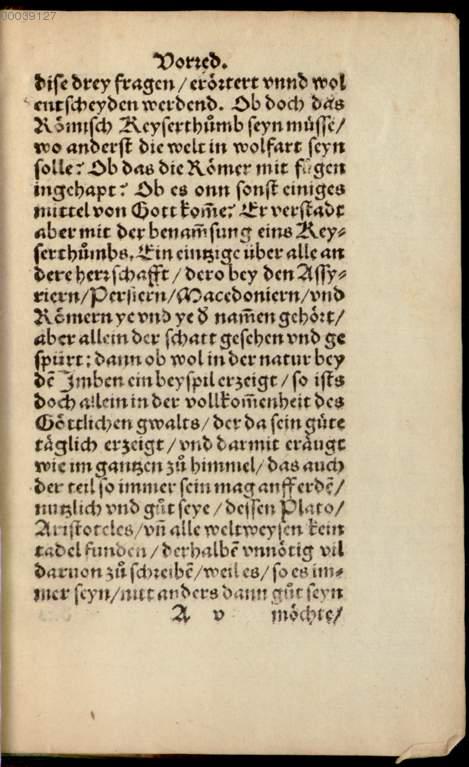 00039127
Vorred.
dise drey fragen / erörtert vnnd wol
entscheyden werdend. Ob doch das
Römisch Keyserthůmb seyn müsse/
wo anderst die welt in wolfart seyn
solle? Ob das die Römer mit fůgen
ingehapt? Ob es onn sonst einiges
mittel von Gott kom̃e? Er verstadt
aber mit der benam̃sung eins Key⸗
serthůmbs, Ein eintzige über alle an
dere herrschafft / dero bey den Assy⸗
riern/Persiern/Macedoniern/vnd
Römern ye vnd ye đ nam̃en gehört/
aber allein der schatt gesehen vnd ge
spürt: dann ob wol in der natur bey
dē Imben ein beyspil erzeigt / so ists
doch allein in der vollkom̃enheit des
Göttlichen gwalts / der da sein güte
täglich erzeigt / vnd darmit eräugt
wie im gantzen zů himmel / das auch
der teil so immer sein mag auff erdē/
nutzlich vnd gůt seye / dessen Plato/
Aristoteles / vñ alle weltweysen kein
tadel funden / derhalbē vnnötig vil
daruon zů schreibē/weil es / so es im⸗
mer seyn/nut anders dann gůt seyn
A v möchte/